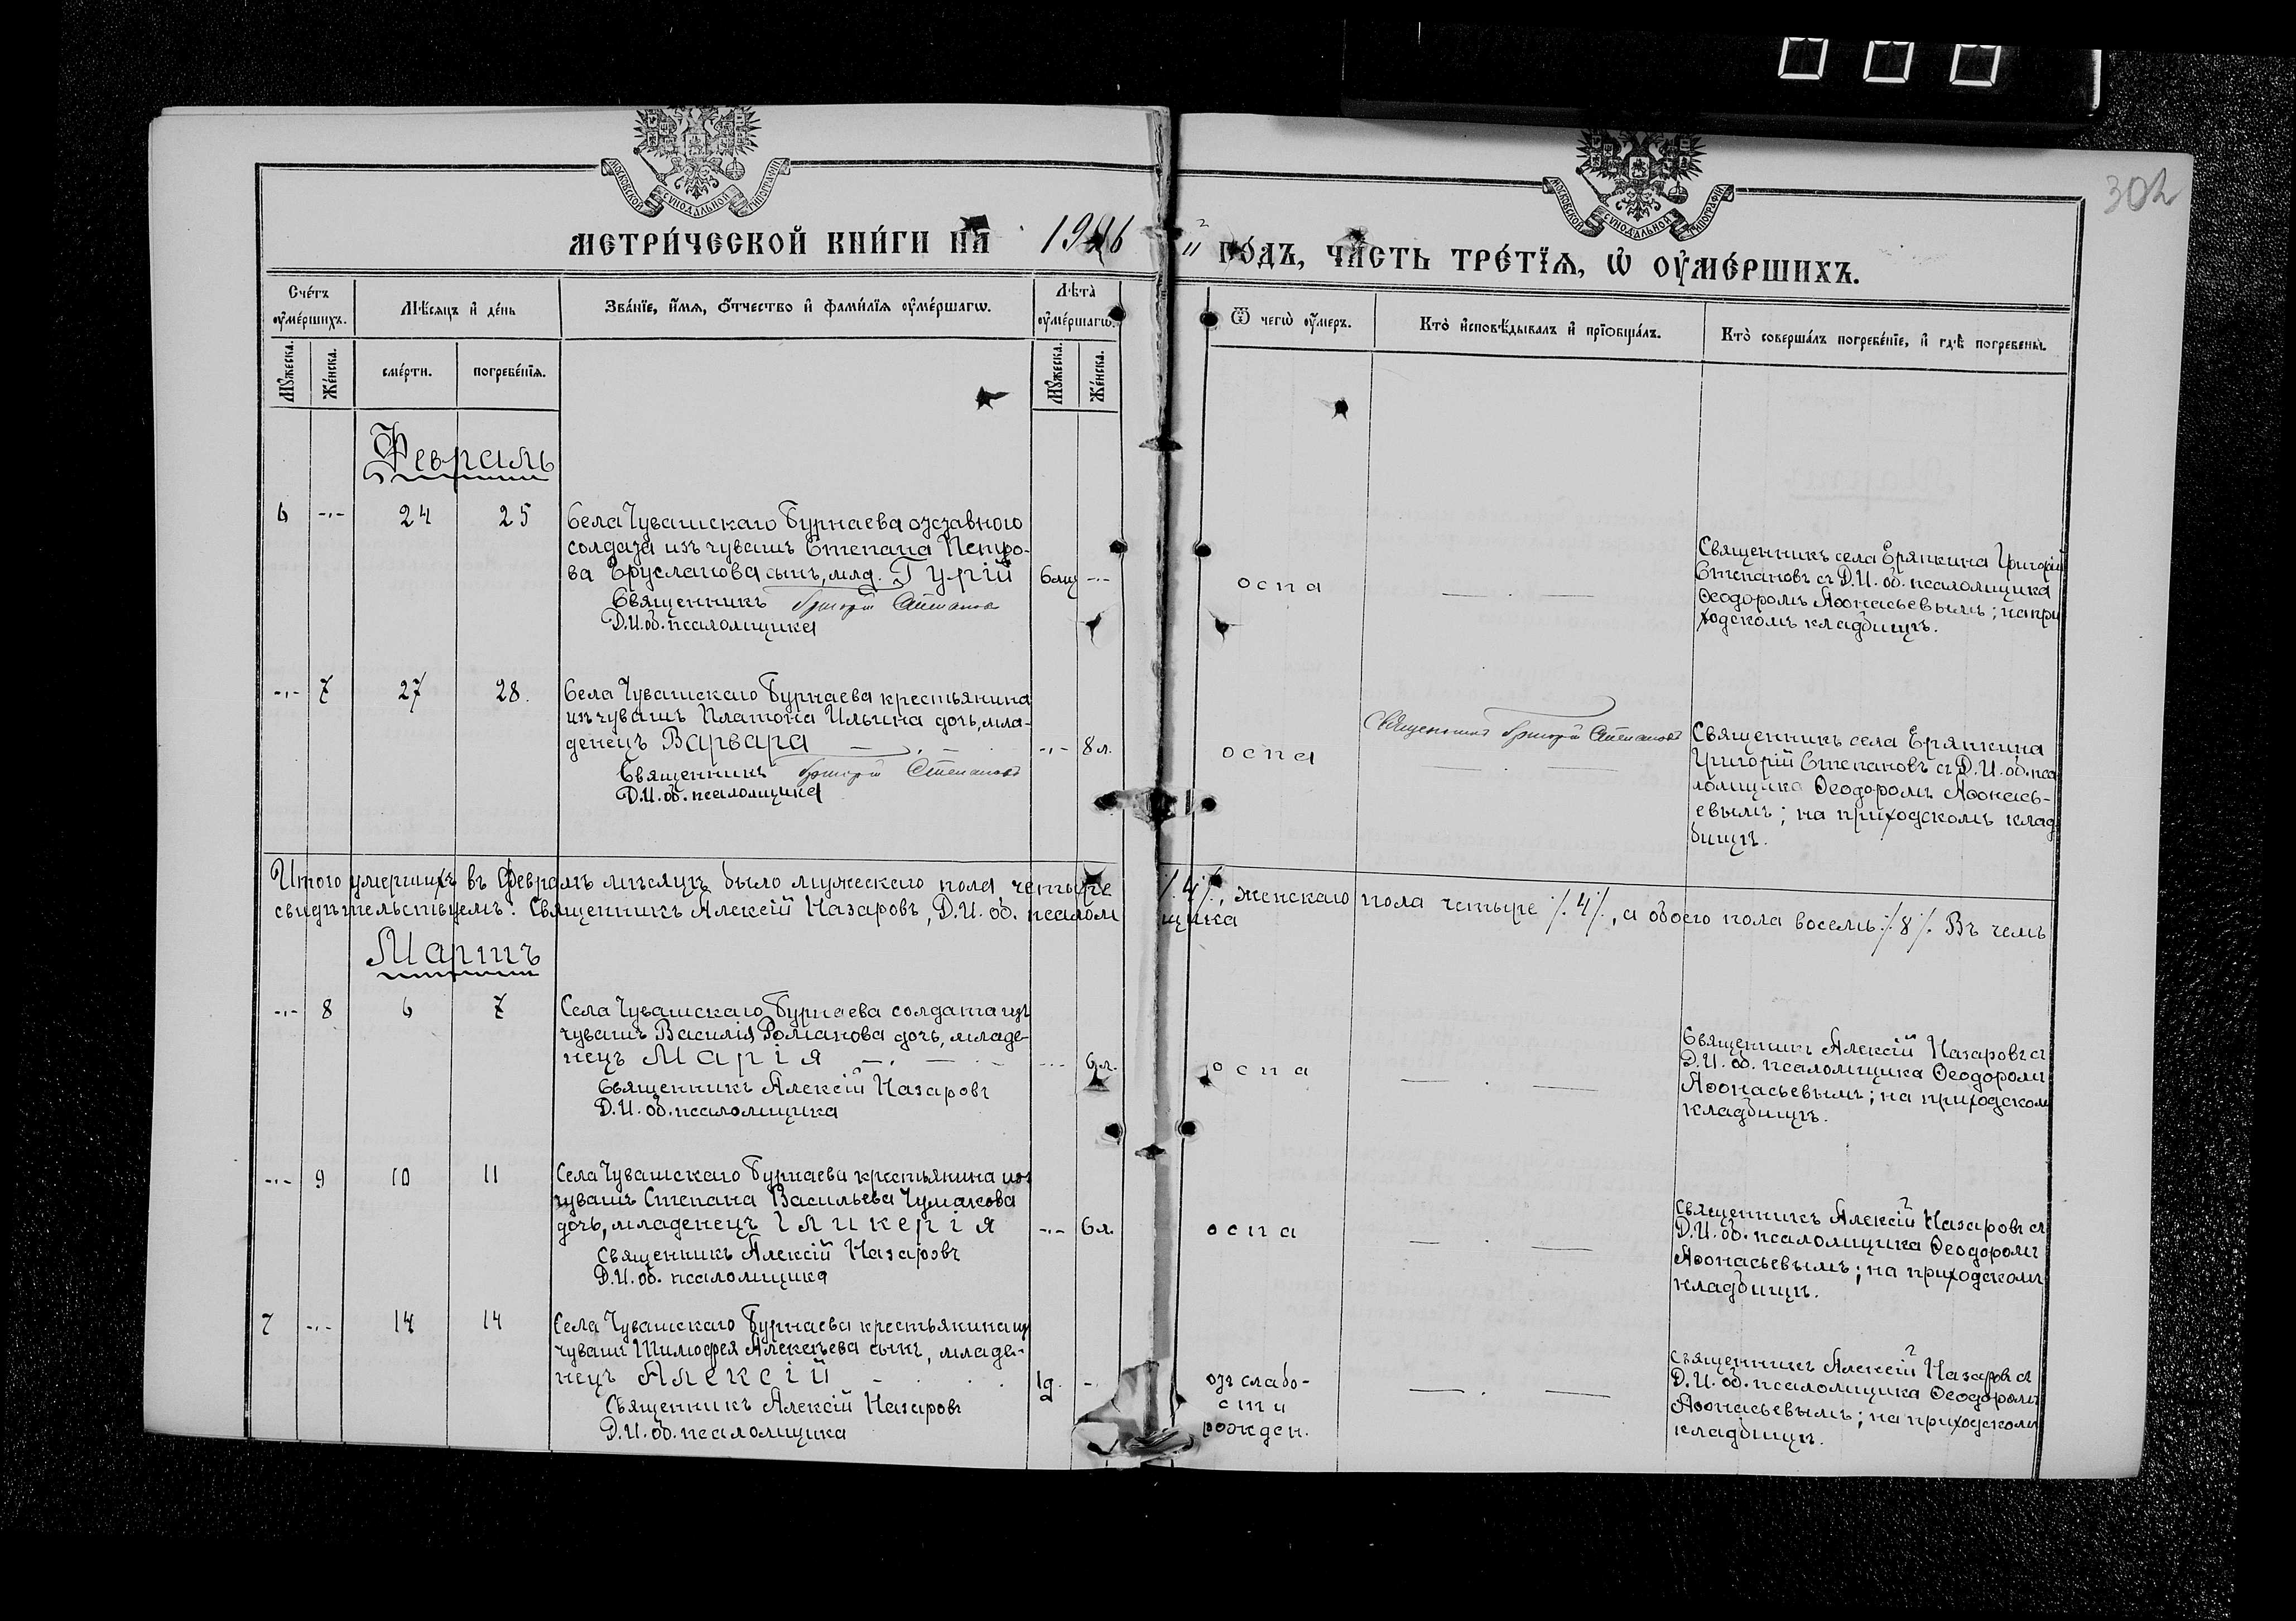 302
МОСКОВСКОЙ СѴНОДАЛЬНОЙ ТИПОГРАФІИ
МОСКОВСКОЙ СѴНОДАЛЬНОЙ ТИПОГРАФІИ
МЕТРИ́ЧЕСКОЙ КНИ́ГИ НА
ГО́ДЪ, ЧА́СТЬ ТРЕ́ТЇѦ, Ѡ ОУ҆МЕ́РШИХЪ.
Сче́тъ оу҆ме́ршихъ.
Мѣ́сяцъ и҆ де́нь
Зва́нїе, и҆́мѧ, ѻ҆́тчество и҆ фами́лїѧ оу҆ме́ршагѡ.
Лѣта̀ оу҆ме́ршагѡ.
Ѿ чегѡ̀ оу҆́меръ.
Кто̀ и҆сповѣ́дывалъ и҆ прїѻбща́лъ.
Кто̀ соверша́лъ погребе́нїе, и҆ гдѣ̀ погребены̀.
Мꙋ́жеска.
Же́нска.
сме́рти.
погребе́нїѧ.
Мꙋ́жеска.
Же́нска.
Февраль
6 -"- 24 25
Села Чувашскаго Бурнаева отставного
солдата изъ чувашъ Степана Петро-
ва Ерусланова сынъ, млд. Гурій
Священникъ Григорій Степановъ
Д.И.об.псаломщика
6 мц -"-
оспа
Священникъ села Ерыкина Григорій
Степановъ съ Д.И. об. псаломщика
Ѳеодоромъ Аѳонасьевымъ; на при
ходскомъ кладбищѣ.
-"- 7 27 28.
Села Чувашскаго Бурнаева крестьянина
изъ чувашъ Платона Ильина дочь, мла-
денецъ Варвара
Священникъ Григорій Степановъ
Д.И.об.псаломщика
-"- 8 л.
оспа
Священникъ Григорій Степановъ
Священникъ села Ерыкина
Григорій Степановъ съ Д.И.об.пса
ломщика Ѳеодоромъ Аѳонась-
евымъ; на приходскомъ клад
бищѣ.
Итого умершихъ въ Февралѣ мѣсяцѣ было мужескаго пола четыре /.4/., женскаго пола четыре /.4/., а обоего пола восемь /.8/. Въ чемъ
свидѣтельствуемъ: Священникъ Алексій Назаровъ, Д.И. об. псалом щика
Мартъ
-"- 8 6 7
Села Чувашскаго Бурнаева солдата изъ
чувашъ Василія Романова дочь, младе-
нецъ Марія
Священникъ Алексій Назаровъ
Д.И.об.псаломщика
-"- 6 л.
оспа
Священникъ Алексій Назаровъ съ
Д.И. об. псаломщика Ѳеодоромъ
Аѳонасьевымъ; на приходском
кладбищѣ.
-"- 9 10 11
Села Чувашскаго Бурнаева крестьянина изъ
чувашъ Степана Васильева Чумакова
дочь, младенецъ Гликерія
Священникъ Алексій Назаровъ
Д.И.об. псаломщика
-"- 6 л.
оспа
Священникъ Алексій Назаровъ съ
Д.И.об.псаломщика Ѳеодоромъ
Аѳонасьевымъ; на приходскомъ
кладбищѣ.
7 -"- 14 14
Села Чувашскаго Бурнаева крестьянина изъ
чувашъ Тимофея Алексѣева сынъ, младе-
нецъ Алексій
Священникъ Алексій Назаровъ
Д.И.об.псаломщика
1 д.
отъ слабо-
сти
рожден.
Священникъ Алексій Назаровъ съ
Д.И.об.псаломщика Ѳеодоромъ
Аѳонасьевымъ; на приходском
кладбищѣ.